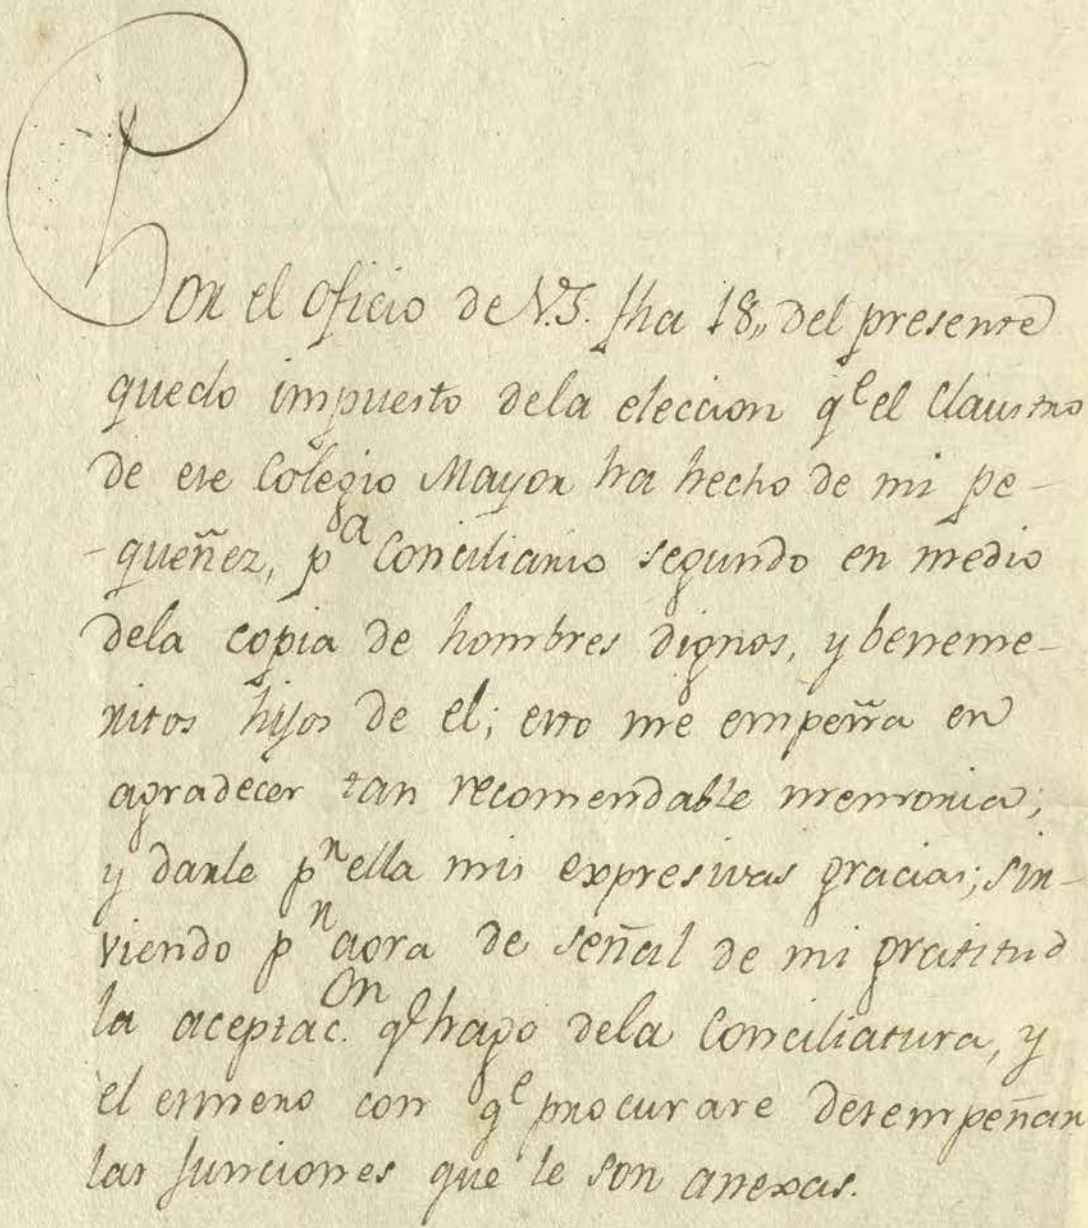 Por el oficio de V.S. fha 18,, del presente
quedo impuesto dela eleccion q.e el Claustro
de ese Colegio Mayor ha hecho de mi pe-
-queñez, p.a Conciliario segundo en medio
dela copia de hombres dignos, y beneme-
ritos hijos de el; esto me empeña en
agradecer tan recomendable memoria;
y darle p.r ella mis expresivas gracias; sir-
viendo p.r aora de señal de mi gratitud
la aceptac.on q.e hago dela Conciliatura, y
el esmero con q.e procurare desempeñar
las funciones que le son anexas.